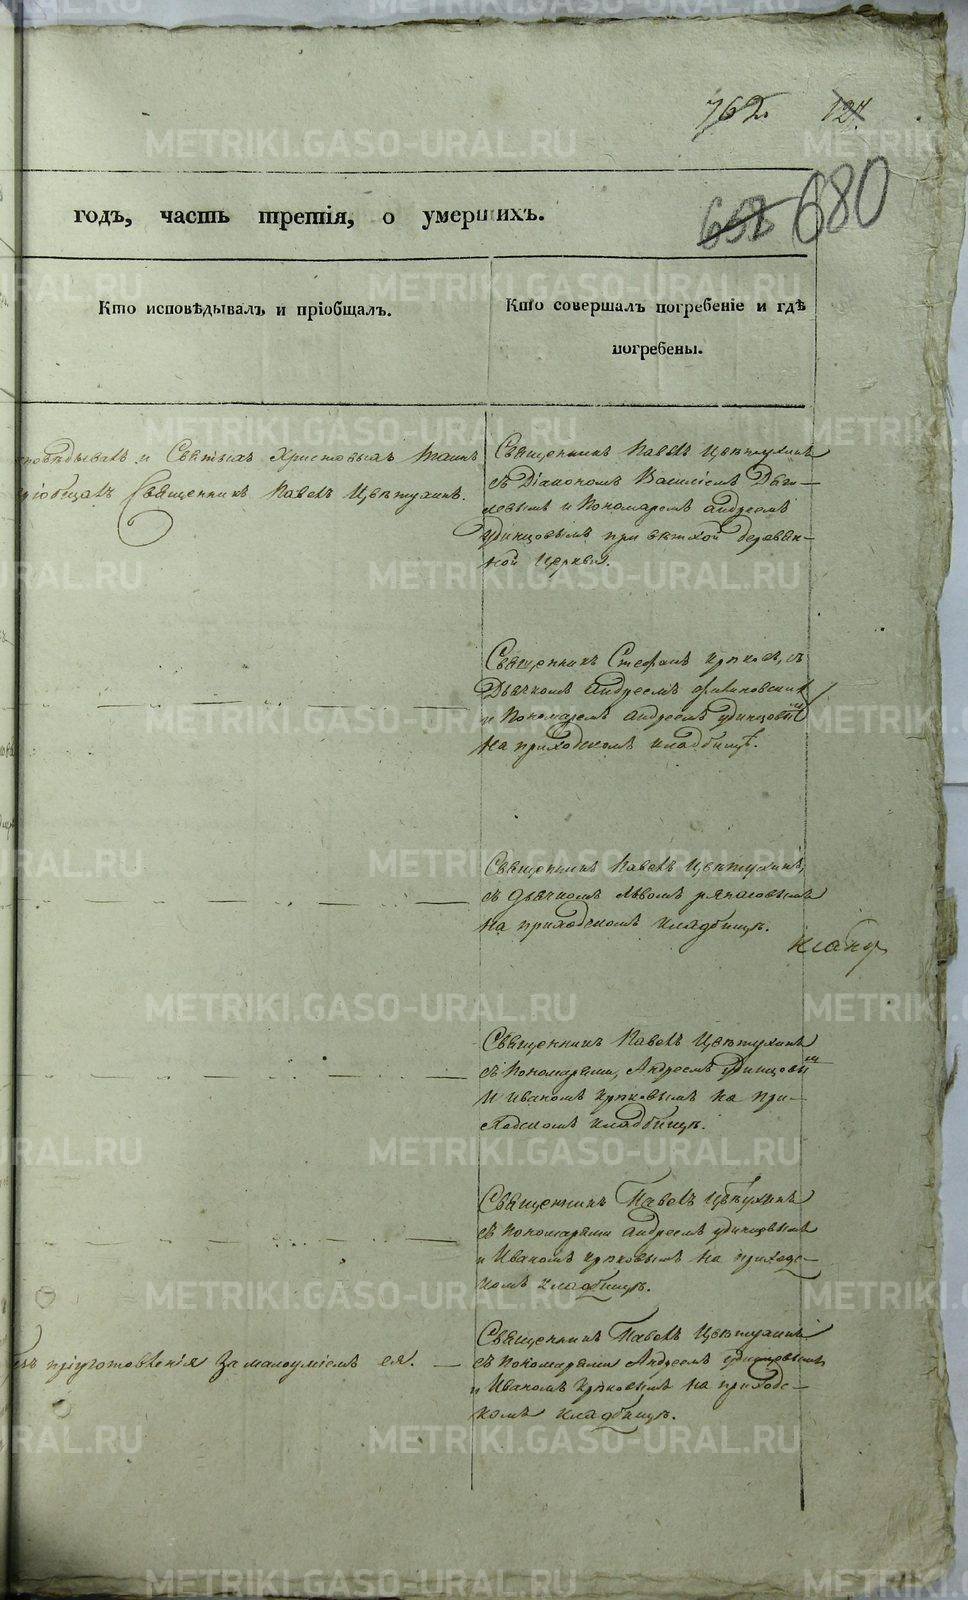 762 127
годъ, часть третія, о умершихъ.
653 680
Кто исповѣдывалъ и пріобщалъ.
Кто совершалъ погребеніе и гдѣ
погребены.
Исповѣдывалъ и Святыхъ Христовыхъ Таинъ
пріобщалъ Священникъ Павелъ Цвѣтухинъ.
Священникъ Павелъ Цвѣтухинъ
съ Діакономъ Василіемъ
и Пономаремъ Андреемъ
Удинцовымъ при ветхой деревян-
ной Церкви.
Священникъ Стефанъ съ
Дьячкомъ Андреемъ
и Пономаремъ Андреемъ Удинцовым
на приходскомъ кладбищѣ.
Священникъ Павелъ Цвѣтухинъ,
съ дьячкомъ Львомъ
на приходскомъ кладбищѣ.
Священникъ Павелъ Цвѣтухинъ
съ Пономарями, Андреемъ Удинцовым
и Иваномъ на при-
ходскомъ кладбищѣ.
Священникъ Павелъ Цвѣтухинъ
съ Пономарями Андреемъ Удинцовымъ
и Иваномъ на приходс-
комъ кладбищѣ.
Священникъ Павелъ Цвѣтухинъ
безъ пріуготовленія за малоуміемъ ея.
съ Пономарями Андреемъ Удинцовымъ
и Иваномъ на приходс-
комъ кладбищѣ.
METRIKI.GASO-URAL.RU